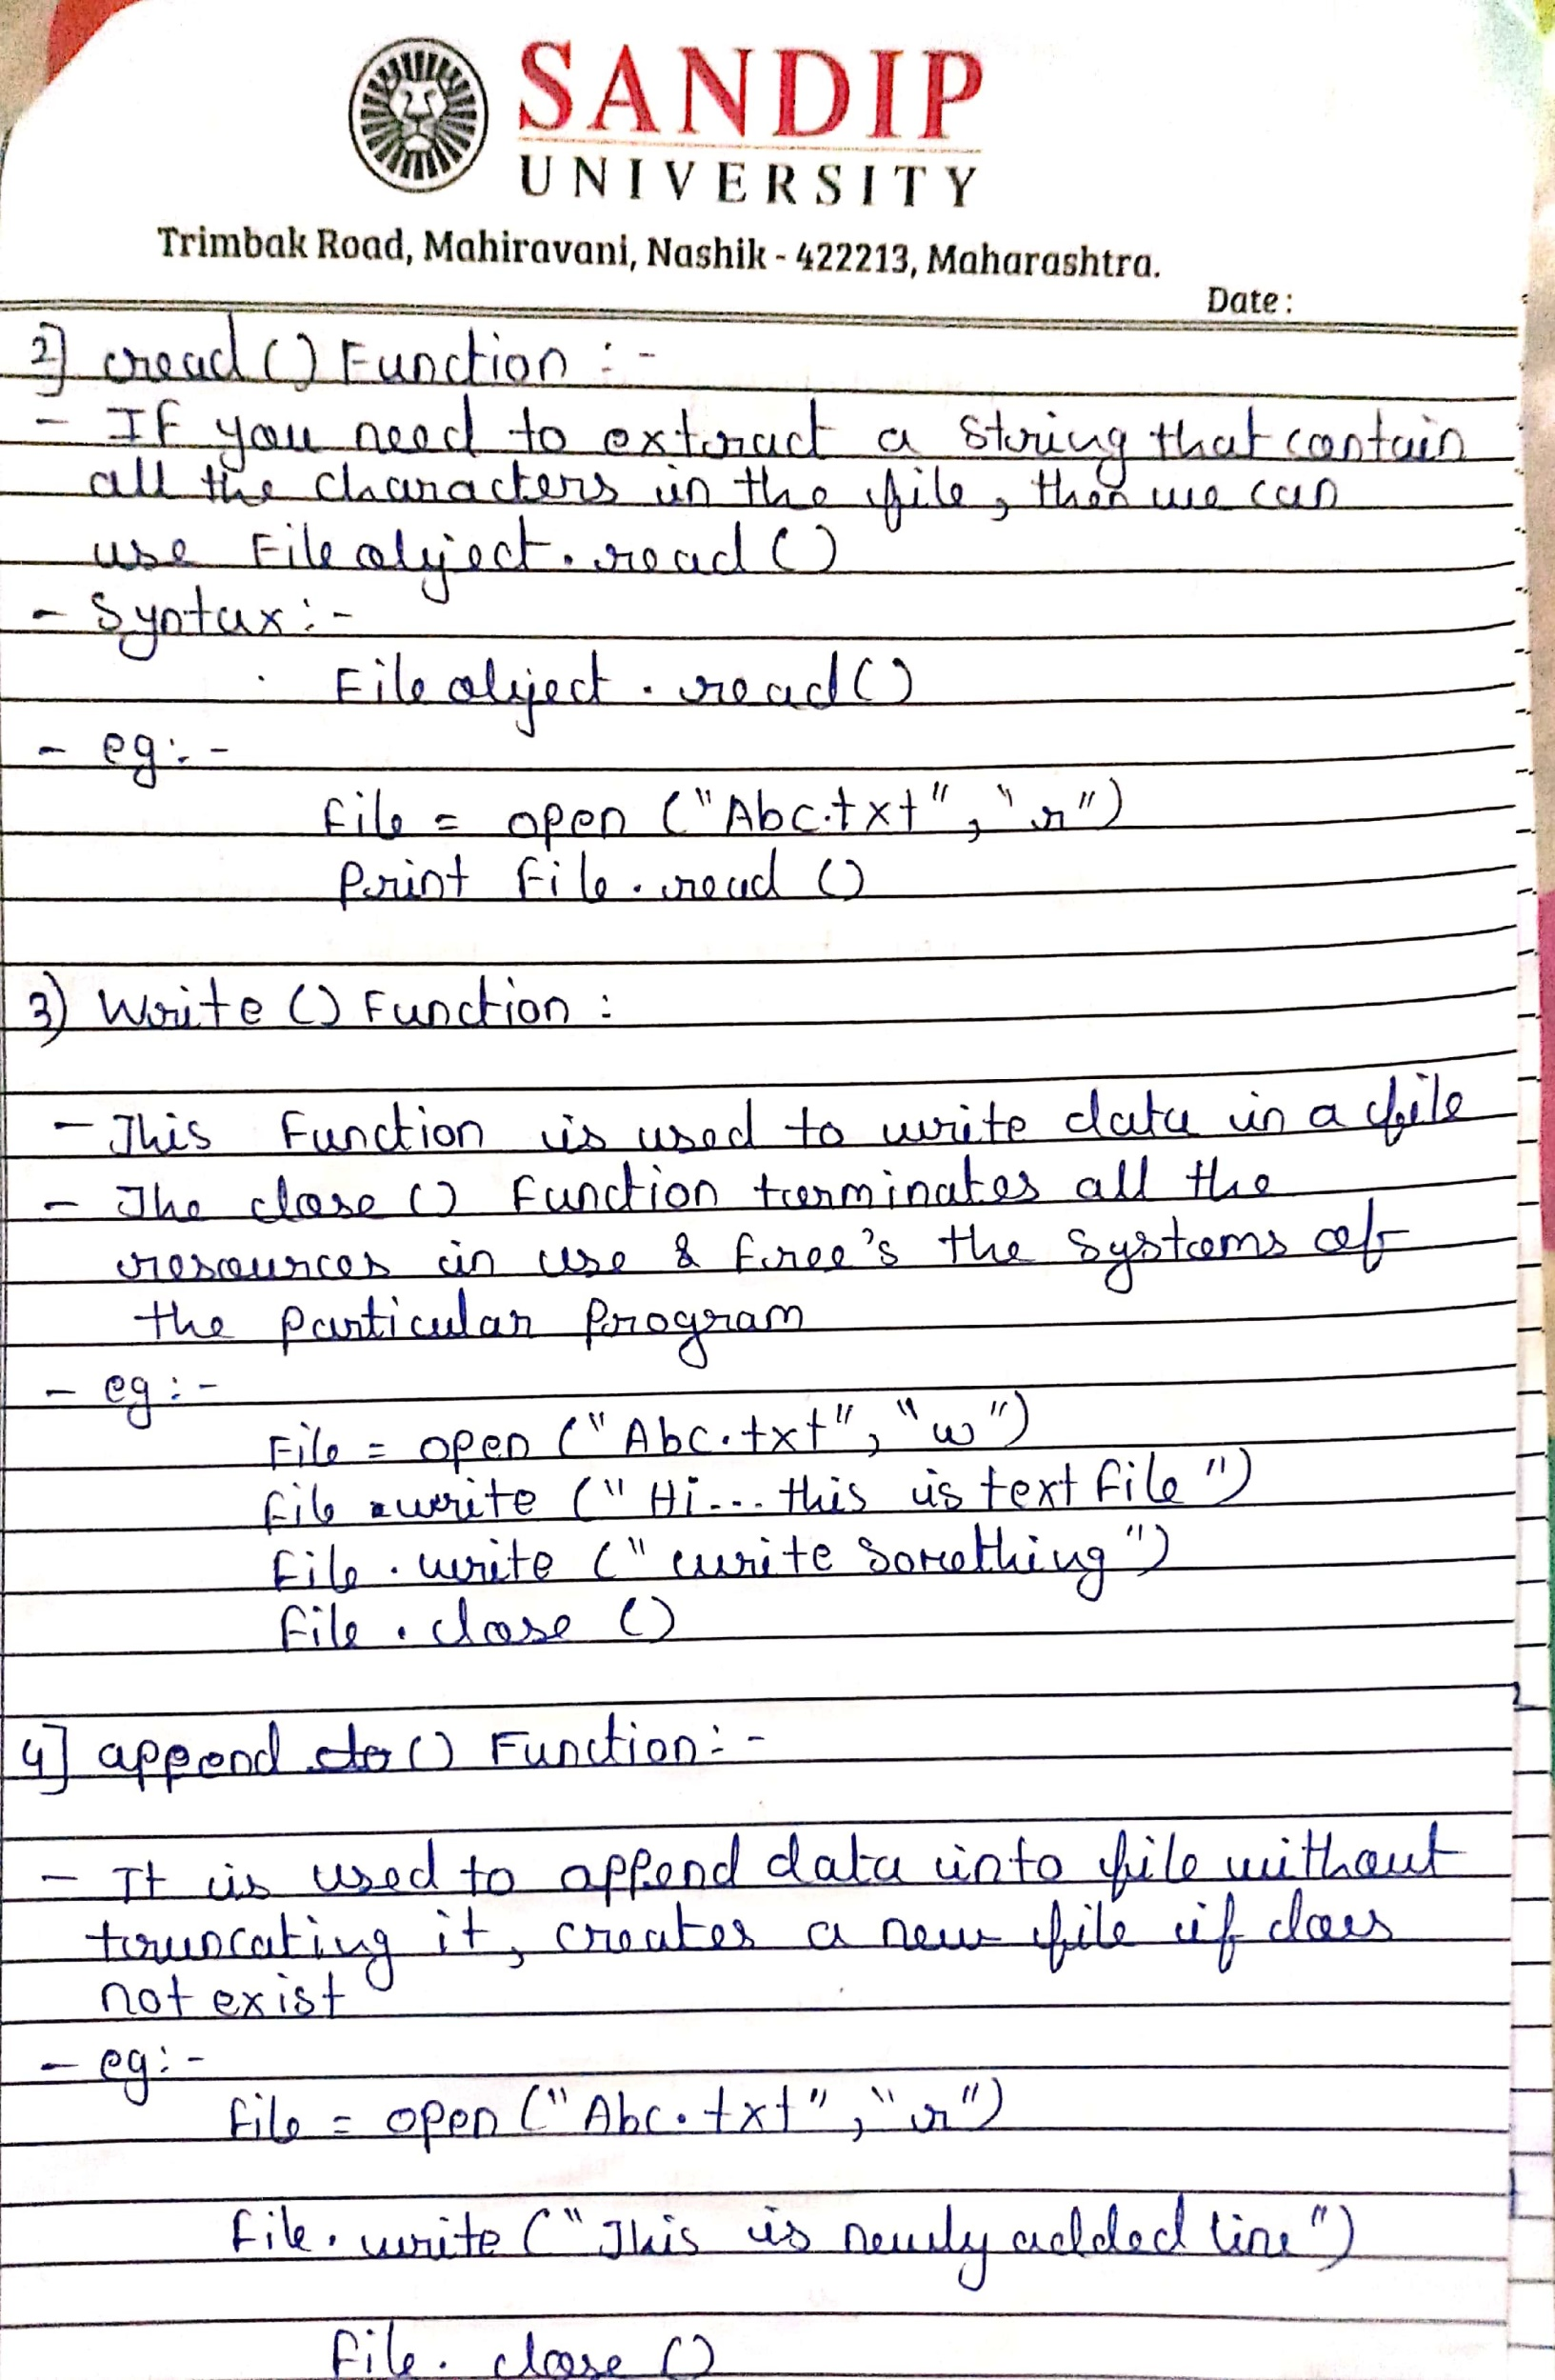 SANDIP
UNIVERSITY
Trimbak Road, Mahiravani, Nashik - 422213, Maharashtra.
Date :
2] read () Function : -
- If you need to extract a string that contain
all the characters in the file, then we can
use File object . read ()
- Syntax : -
File object . read ()
- eg : -
file = open ("Abc.txt", "r")
Print File . read ()
3) Write () Function :
- This Function is used to write data in a file
- The close () Function terminates all the
resources in use & free's the systems of
the particular program
- eg : -
File = open ("Abc.txt", "w")
file . write ("Hi... this is text file")
File . write ("write something")
file . close ()
4] append to () Function : -
- It is used to append data into file without
truncating it, creates a new file if does
not exist
- eg : -
file = open ("Abc.txt", "r")
file . write ("This is newly added line")
file . close ()